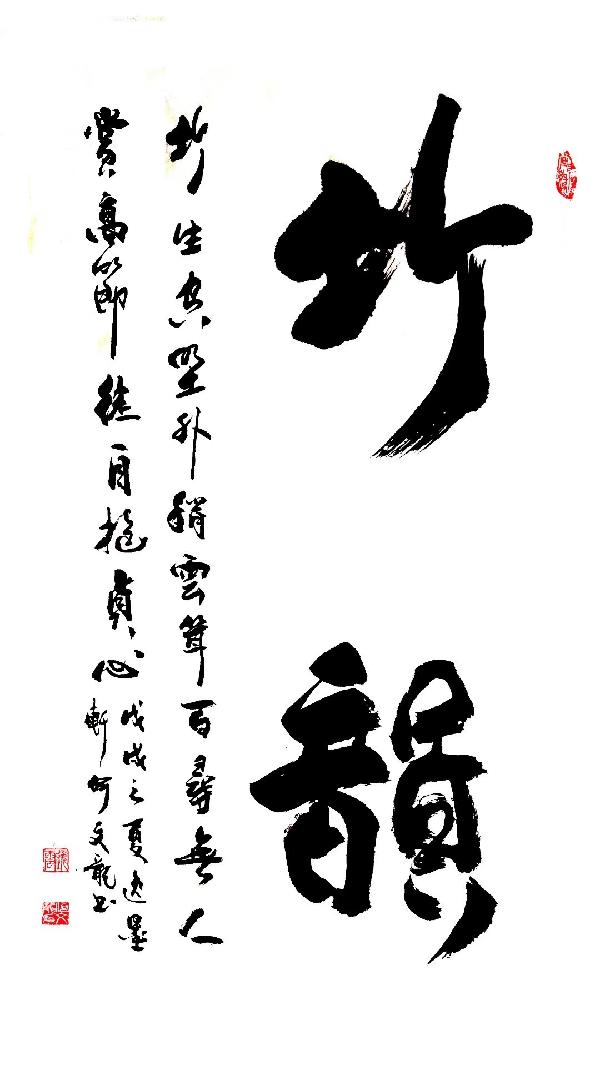 竹韻
竹生空野外梢雲聳百尋無人
賞高節徒自抱貞心
戊戌之夏逸墨
軒何文龍書